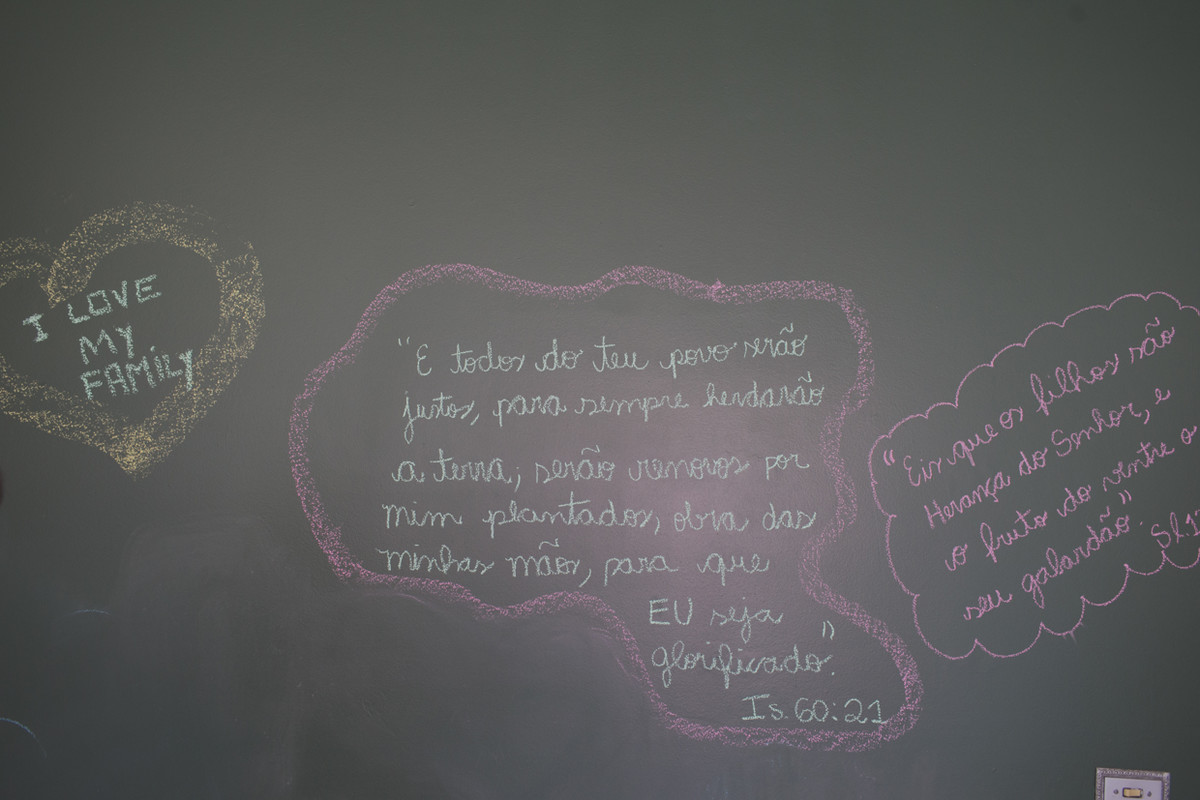 I LOVE
MY
FAMiLY
"E todos do teu povo serão
justos, para sempre herdarão
a terra; serão renovos por
mim plantados, obra das
minhas mãos, para que
EU seja
glorificado."
Is. 60:21
"Eis que os filhos são
Herança do Senhor, e
o fruto do ventre o
seu galardão".
Sl.1